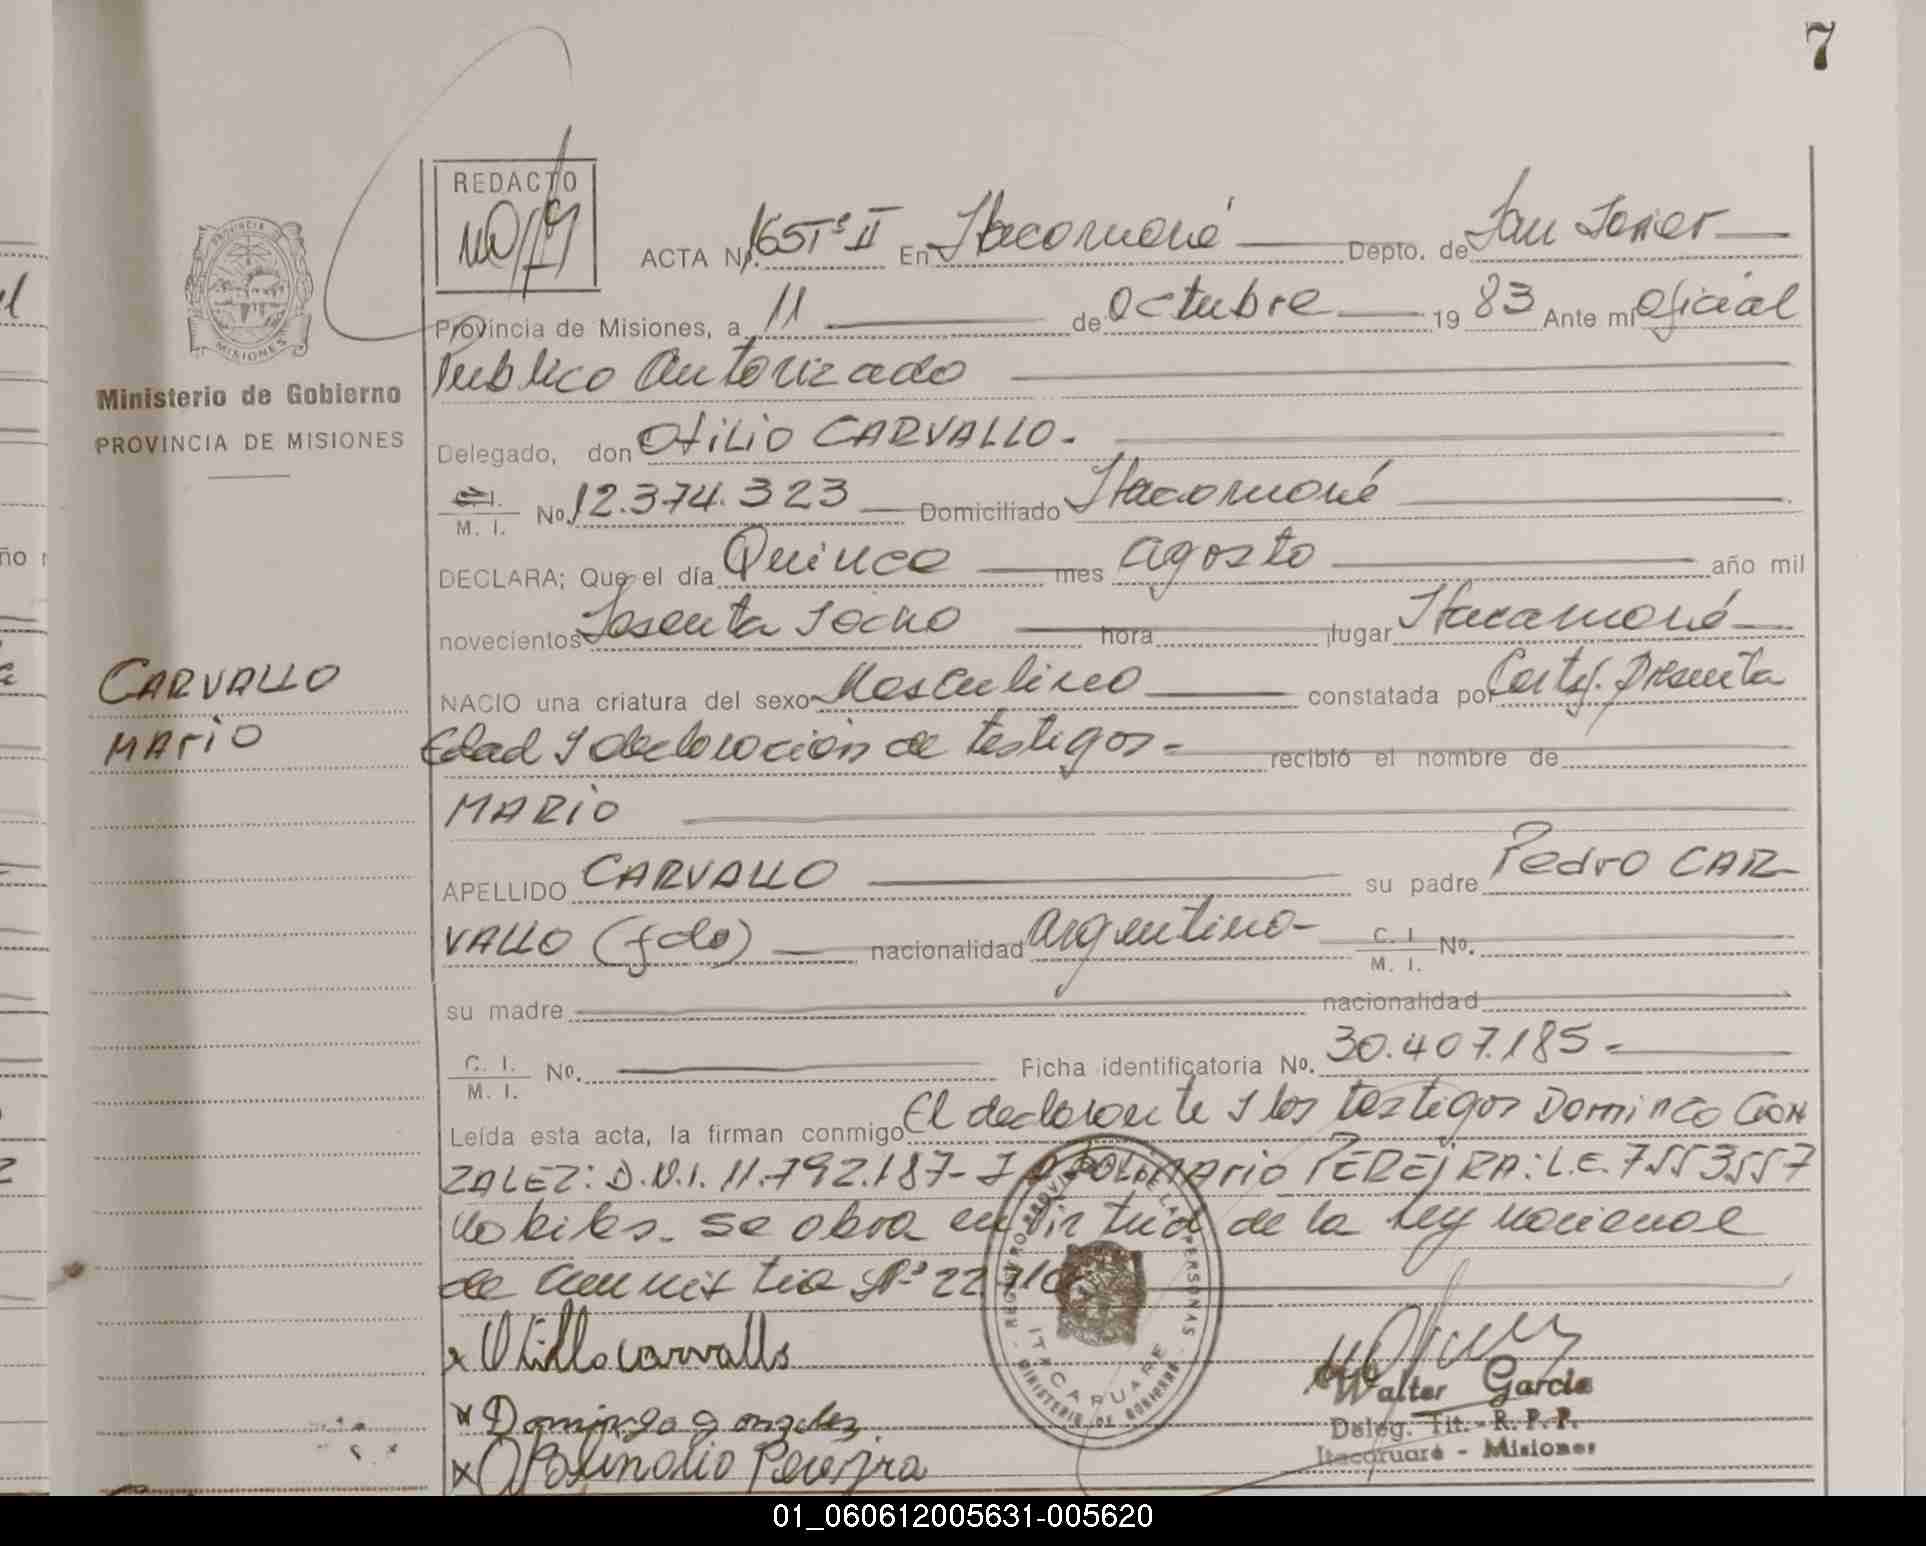 7
REDACTO
ACTA No. 165 Tº II En Itacaruaré Depto. de San Javier
Provincia de Misiones, a 11 de Octubre 1983 Ante mi Oficial
Publico Autorizado
PROVINCIA
MISIONES
Ministerio de Gobierno
PROVINCIA DE MISIONES
Delegado, don OtiLiO CARVALLO.
C. I. M. I. No. 12.374.323 Domiciliado Itacaruaré
DECLARA; Que el día Quince mes agosto año mil
novecientos Sesenta y ocho hora lugar Itacaruaré
CARVALLO
MARiO
NACIO una criatura del sexo Masculino constatada por Certif. Presunta
Edad y declaración de testigos- recibió el nombre de
MARiO
APELLIDO CARVALLO su padre Pedro CAR-
VALLO (fdo) nacionalidad argentino- C. I. M. I. No.
su madre nacionalidad
C. I. M. I. No. Ficha identificatoria No. 30.407.185-
Leída esta acta, la firman conmigo El declarante y los testigos DominGo GON
ZALEZ: D.N.I. 11.792.187- y APOLiNARiO PEREjRA: L.E. 7553557
habiles. se obra en virtud de la ley nacional
de amnistia Nº
REGISTRO PROVINCIAL DE LAS PERSONAS
ITACARUARE
MINISTERIO DE GOBIERNO
x Otillo carvallo
x Domingo gonzalez
x APolinario Perejra
Walter Garcia
Deleg. Tit. - R. P. P.
Itacaruaré - Misiones
01_060612005631-005620